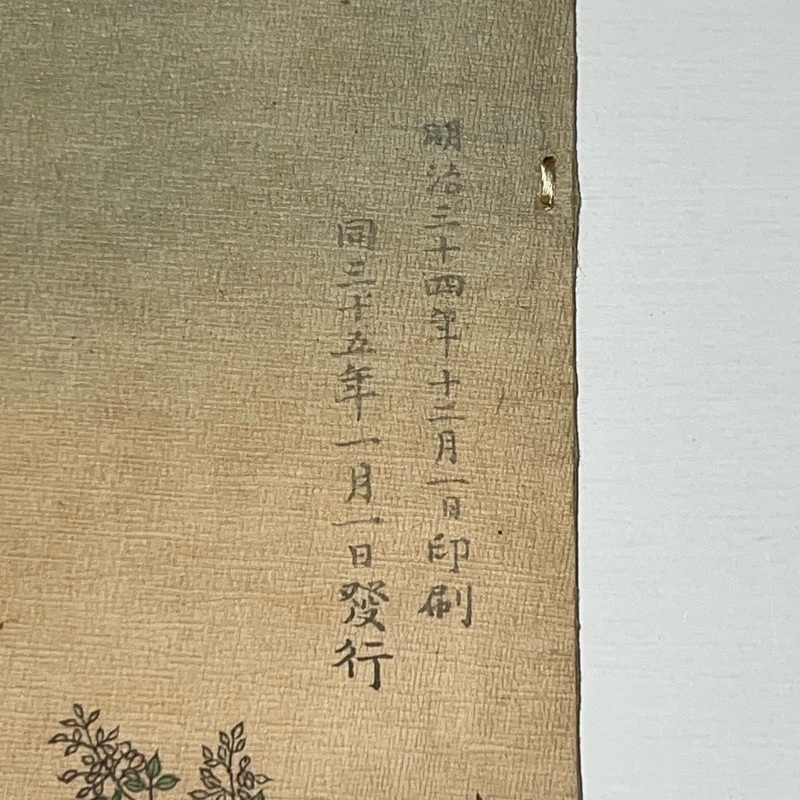 明治三十四年十二月一日印刷
同三十五年一月一日發行